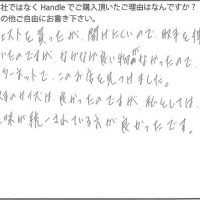 社ではなく Handle でご購入頂いたご理由はなんですか？
の他ご自由にお書き下さい。
ェストを買ったが、開けにくいので、取手を
たのですが なかなか良い物がなかったので、
ターネットで、このお店を見つけました。
のサイズは、良かったのですが 私としては、
味が統一されている方が良かったです。